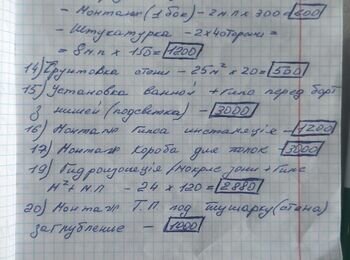 - Монтаж (1 бок) - 2 м.п х 300 = 600
- Штукатурка - 2 х 4 стороны =
= 8 м п х 150 = 1200
14) Грунтовка стен - 25 м² х 20 = 500
15) Установка ванной + Гипс перед борт
з нишей (подсветка) - 3000
16) Монтаж Гипса инсталяція - 1200
17) Монтаж короба для полок - 3000
19) Гидроизоляція / мокрые зоны + Гипс
м² + м.п - 24 х 120 = 2880
20) Монтаж Т.П под тушарку (стена)
заглубление -